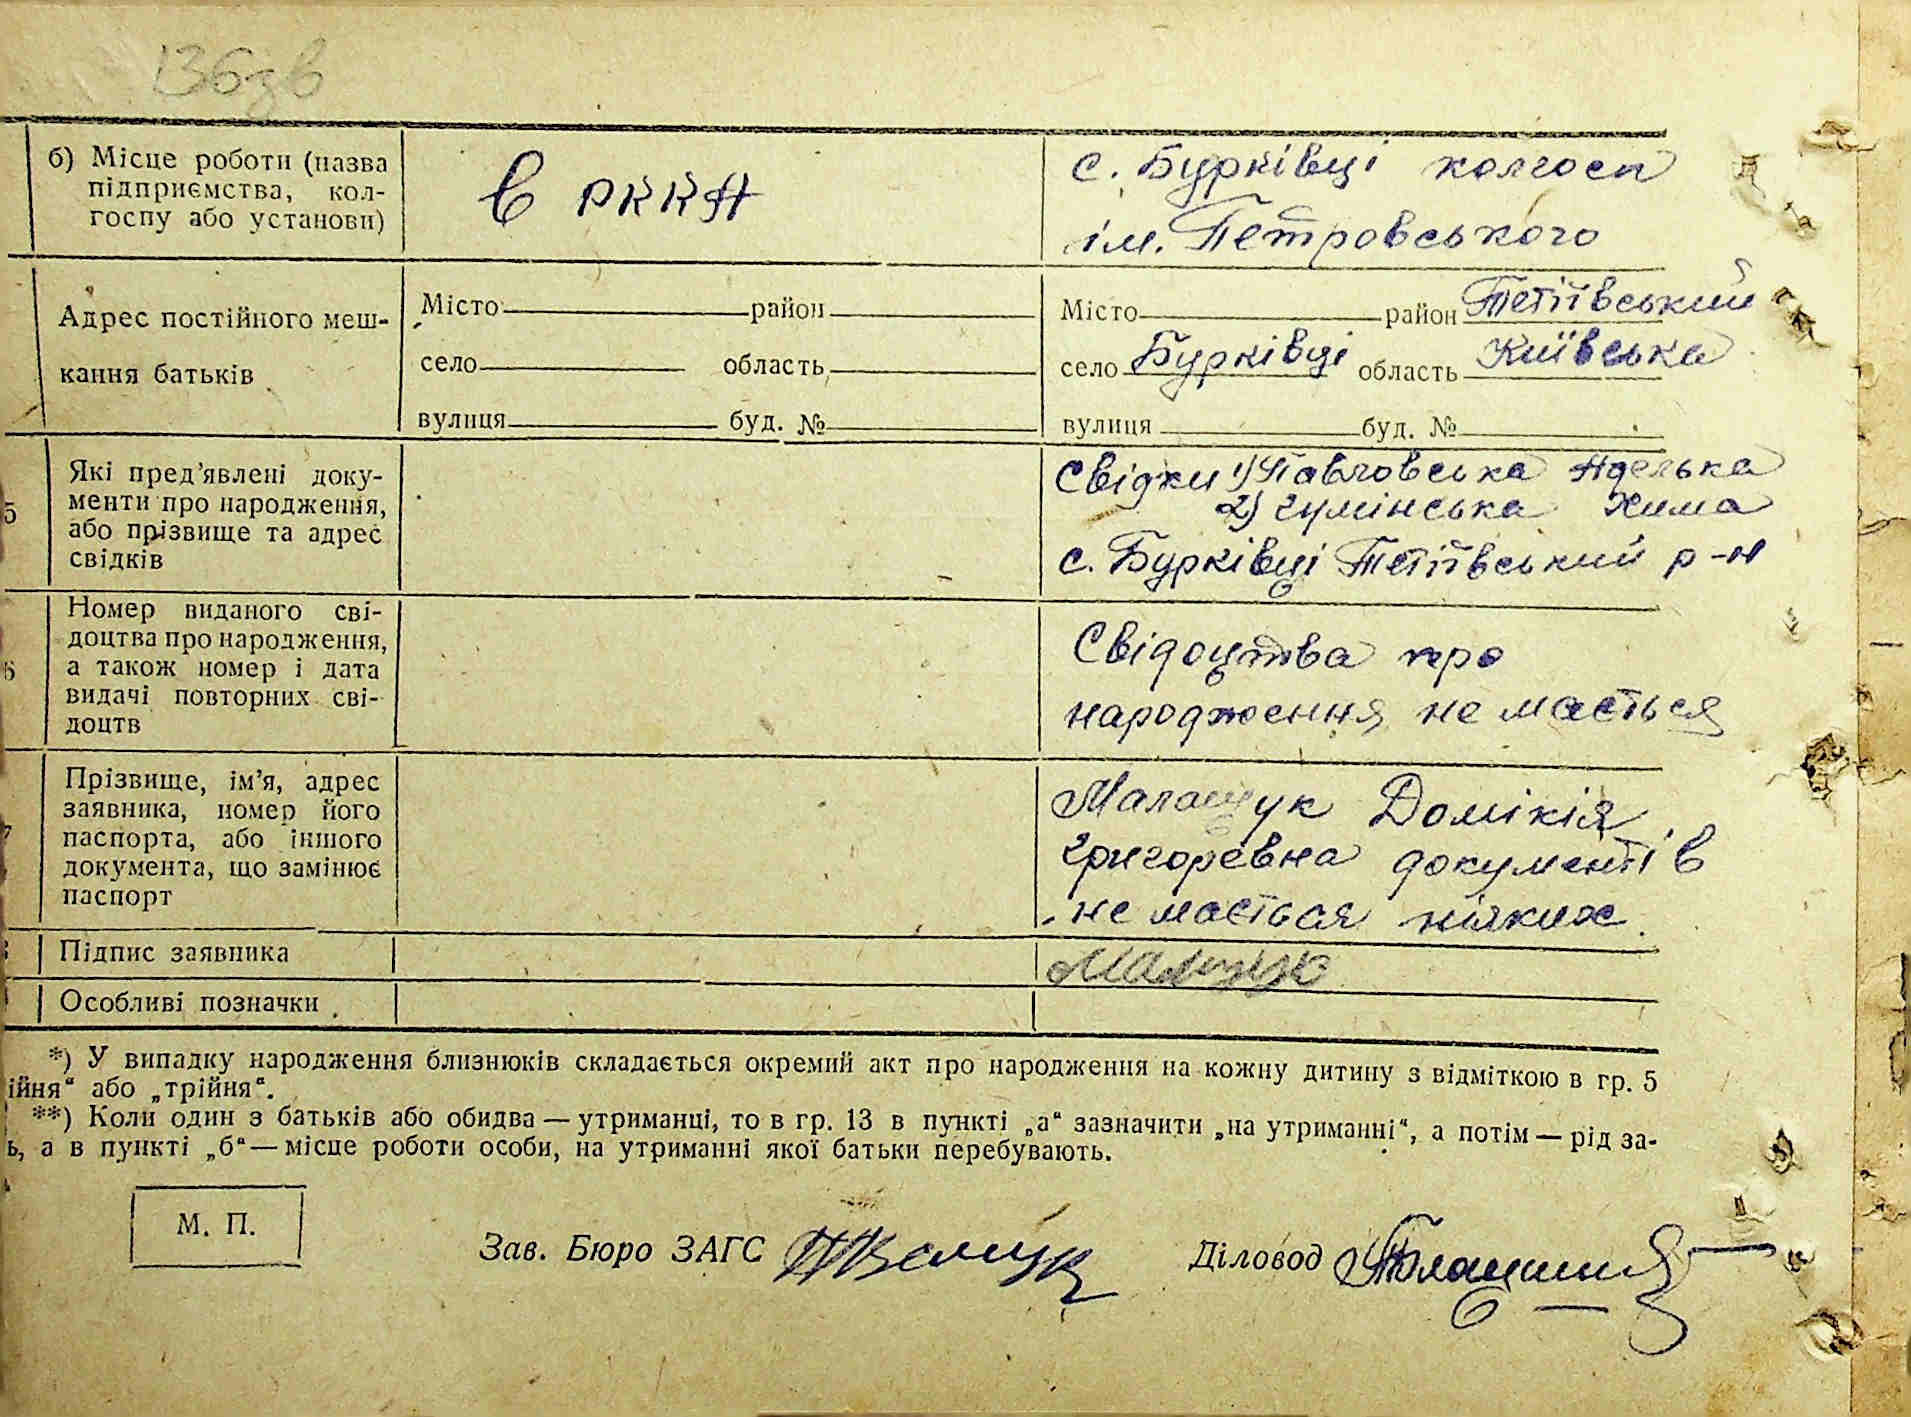 136зв
б) Місце роботи (назва
підприємства, кол-
госпу або установи)
в РККА
с. Бурківці колгосп
ім. Петровського
Адрес постійного меш-
кання батьків
Місто район
село область
вулиця буд. №
Місто район Тетіївський
село Бурківці область Київська
вулиця буд. №
5
Які пред’явлені доку-
менти про народження,
або прізвище та адрес
свідків
Свідки 1) Павловська Аделька
2) Чумінська Хима
с. Бурківці Тетіївський р-н
6
Номер виданого сві-
доцтва про народження,
а також номер і дата
видачі повторних сві-
доцтв
Свідоцтва про
народження не мається
7
Прізвище, ім’я, адрес
заявника, номер його
паспорта, або іншого
документа, що замінює
паспорт
Малащук Домікія
Григоревна документів
не мається ніяких.
Підпис заявника
Особливі позначки
*) У випадку народження близнюків складається окремий акт про народження на кожну дитину з відміткою в гр. 5
ійня“ або „трійня“.
**) Коли один з батьків або обидва — утриманці, то в гр. 13 в пункті „а“ зазначити „на утриманні“, а потім — рід за-
ь, а в пункті „б“ — місце роботи особи, на утриманні якої батьки перебувають.
М. П.
Зав. Бюро ЗАГС
Діловод